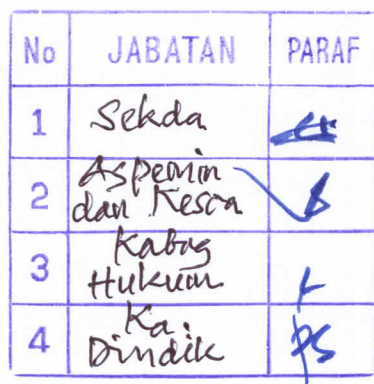 No JABATAN PARAF
1 Sekda
Aspemin
2 dan Kesra
Kabag
3 Hukum
Ka.
4 Dindik